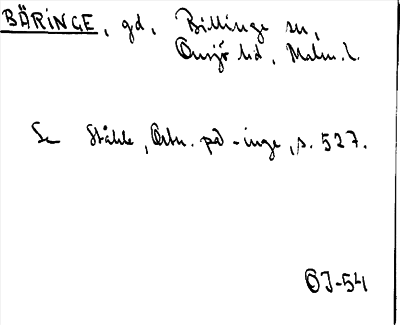 BÄRINGE, gd, Billinge sn,
Onsjö hd, Malm. l.
Se Ståhle, Ortn. på -inge, s. 527.
OJ-54